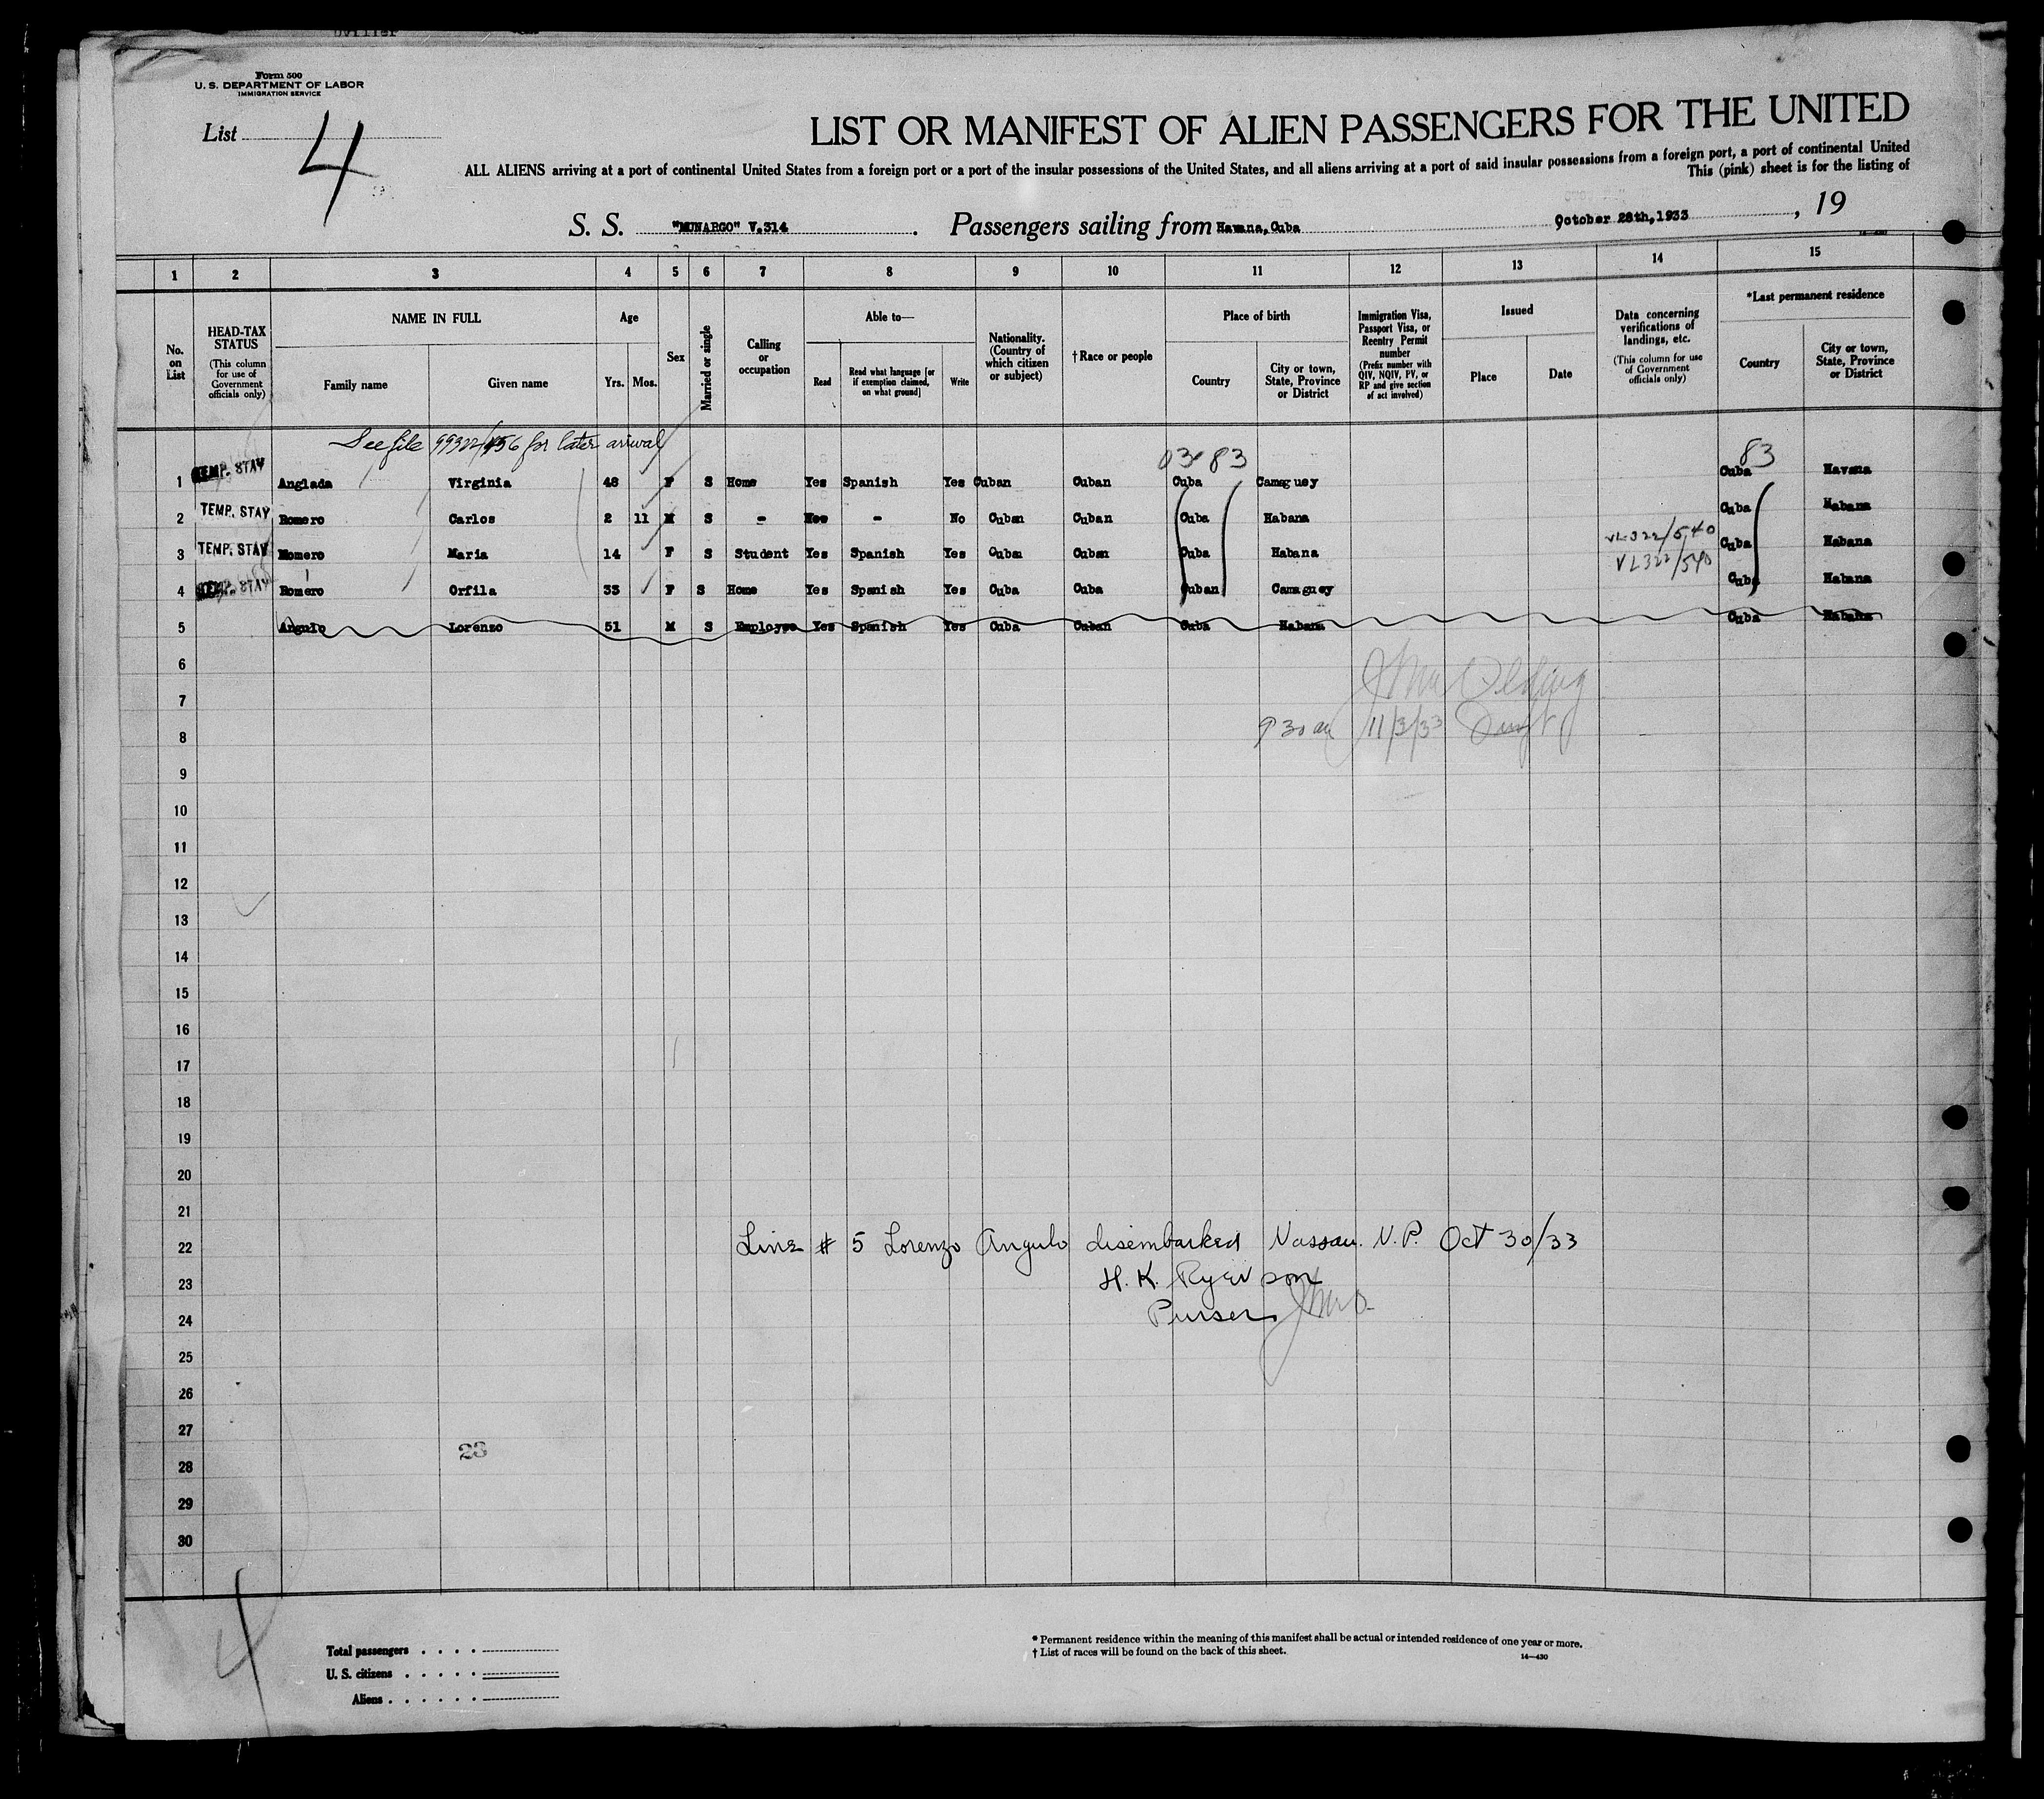 Form 500
U. S. DEPARTMENT OF LABOR
IMMIGRATION SERVICE
List 4
LIST OR MANIFEST OF ALIEN PASSENGERS FOR THE UNITED
ALL ALIENS arriving at a port of continental United States from a foreign port or a port of the insular possessions of the United States, and all aliens arriving at a port of said insular possessions from a foreign port, a port of continental United
This (pink) sheet is for the listing of
S. S. "MUNARGO" V.314 . Passengers sailing from Havana, Cuba October 28th, 1933 , 19
1 2 3 4 5 6 7 8 9 10 11 12 13 14 15
No. on List
HEAD-TAX STATUS (This column for use of Government officials only)
NAME IN FULL
Family name Given name
Age
Yrs. Mos.
Sex
Married or single
Calling or occupation
Able to—
Read
Read what language [or if exemption claimed, on what ground]
Write
Nationality. (Country of which citizen or subject)
†Race or people
Place of birth
Country
City or town, State, Province or District
Immigration Visa, Passport Visa, or Reentry Permit number (Prefix number with QIV, NQIV, PV, or RP and give section of act involved)
Issued
Place Date
Data concerning verifications of landings, etc. (This column for use of Government officials only)
*Last permanent residence
Country
City or town, State, Province or District
See file 99322/456 for later arrival
03 83 83
1 TEMP. STAY Anglada Virginia 48 F S Home Yes Spanish Yes Cuban Cuban Cuba Camaguey Cuba Havana
2 TEMP. STAY Romero Carlos 2 11 M S - - No Cuban Cuban Cuba Habana Cuba Habana
3 TEMP. STAY Romero Maria 14 F S Student Yes Spanish Yes Cuban Cuban Cuba Habana VL322/540 Cuba Habana
VL322/540
4 TEMP. STAY Romero Orfila 33 F S Home Yes Spanish Yes Cuba Cuba Cuban Camaguey Cuba Habana
5 Angulo Lorenzo 51 M S Employee Yes Spanish Yes Cuba Cuban Cuba Habana Cuba Habana
6
7
9 30 am 11/3/33
8
9
10
11
12
13
14
15
16
17
18
19
20
21
22 Line # 5 Lorenzo Angulo disembarked Nassau. N.P. Oct 30/33
23 H. K. Ryerson
24 Purser
25
26
27
23
28
29
30
4
Total passengers
U. S. citizens
Aliens
* Permanent residence within the meaning of this manifest shall be actual or intended residence of one year or more.
† List of races will be found on the back of this sheet.
14—430